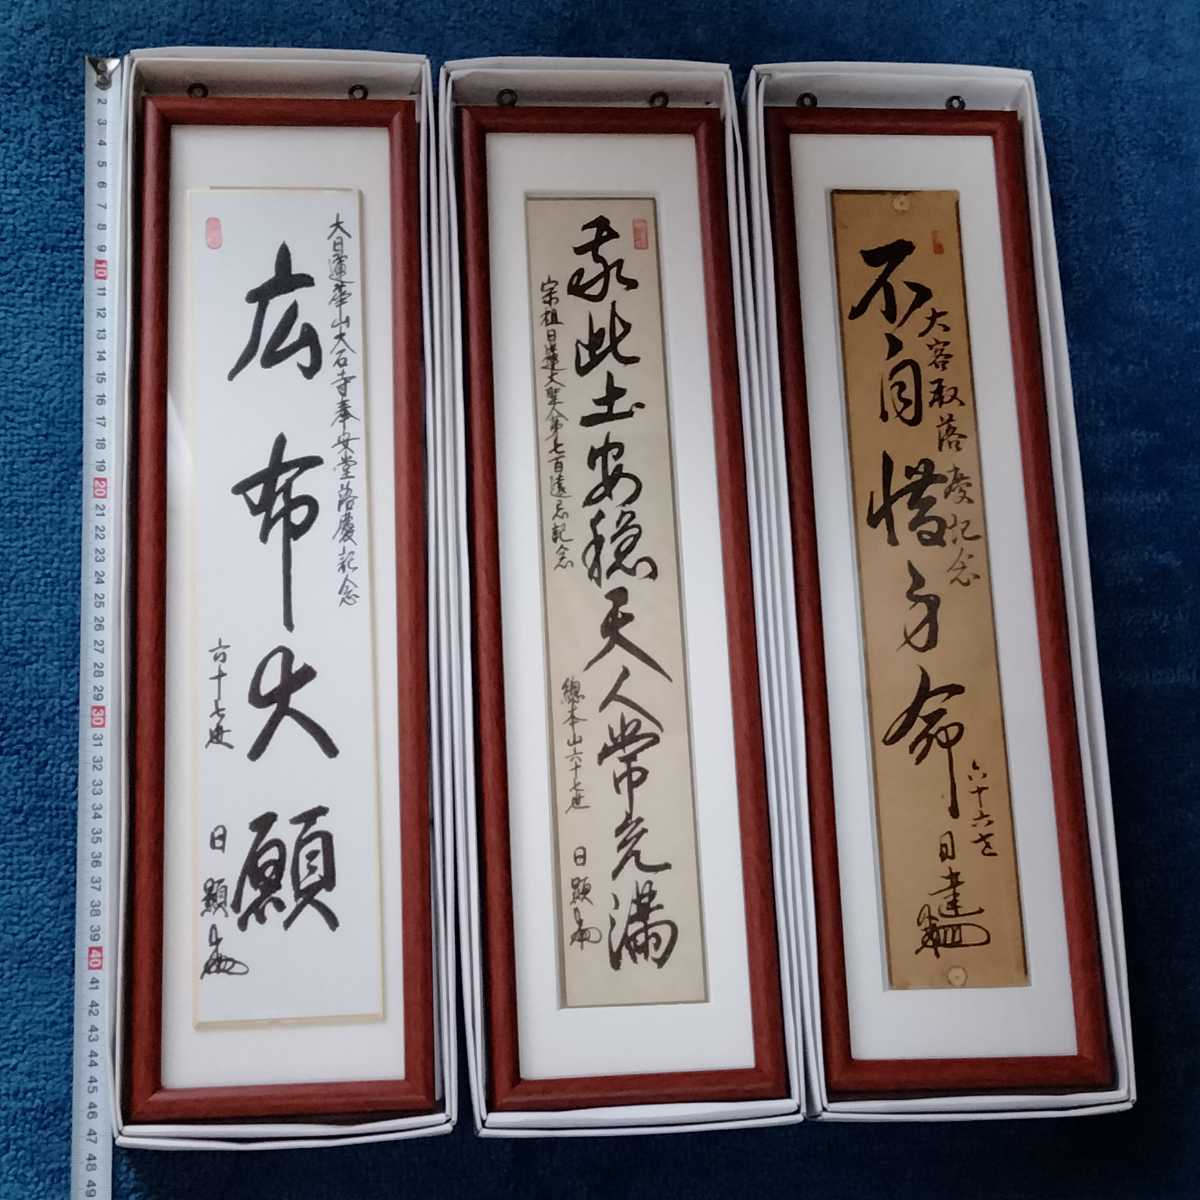 大日蓮華山大石寺奉安堂落慶記念
広布大願
六十七世
日顕
我此土安穏天人常充満
宗祖日蓮大聖人第七百遠忌記念
総本山六十七世
日顕
不自惜身命
大客殿落慶記念
六十六世
日達
2
3
4
5
6
7
8
9
10
11
12
13
14
15
16
17
18
19
20
21
22
23
24
25
26
27
28
29
30
31
32
33
34
35
36
37
38
39
40
41
42
43
44
45
46
47
48
49